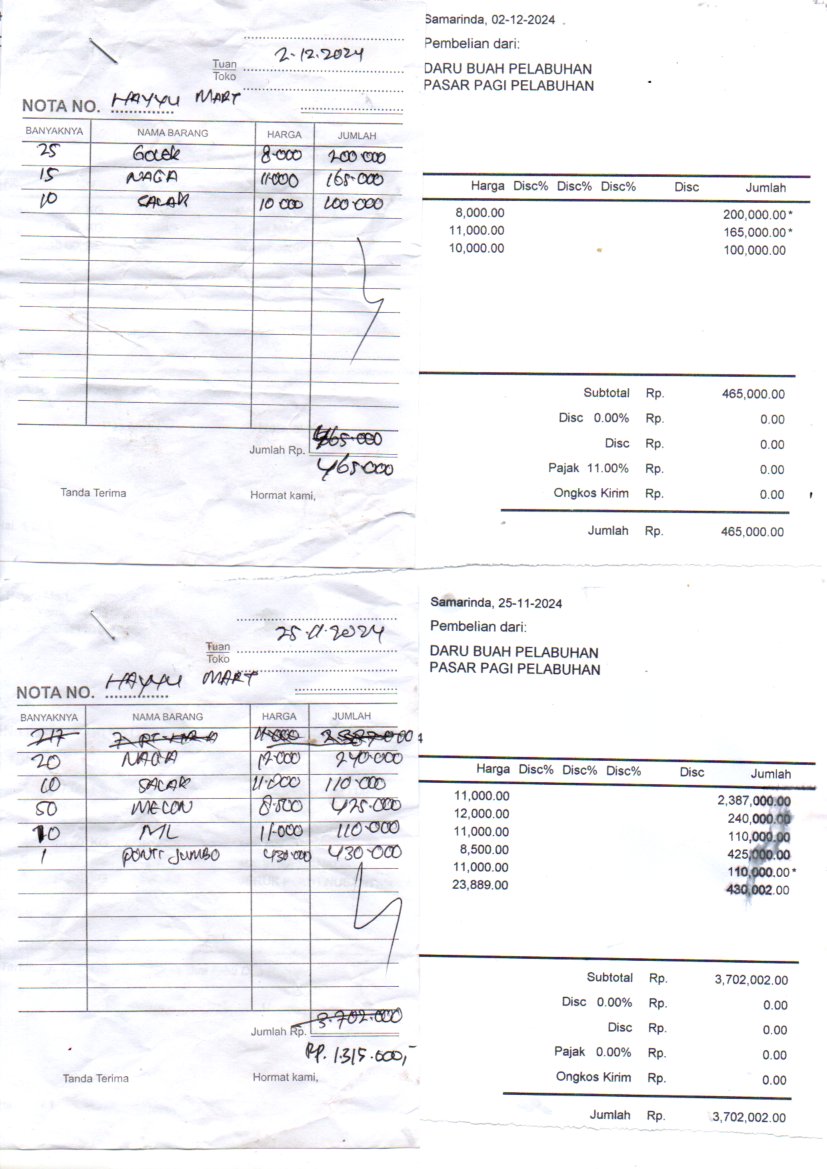 2-12.2024
Tuan
Toko
NOTA NO. HAYYU MART
BANYAKNYA NAMA BARANG HARGA JUMLAH
25 Golek 8.000 200.000
15 NAGA 11.000 165.000
10 SALAK 10 000 100.000
Jumlah Rp. 465.000
465.000
Tanda Terima Hormat kami,
Samarinda, 02-12-2024
Pembelian dari:
DARU BUAH PELABUHAN
PASAR PAGI PELABUHAN
Harga Disc% Disc% Disc% Disc Jumlah
8,000.00 200,000.00*
11,000.00 165,000.00*
10,000.00 100,000.00
Subtotal Rp. 465,000.00
Disc 0.00% Rp. 0.00
Disc Rp. 0.00
Pajak 11.00% Rp. 0.00
Ongkos Kirim Rp. 0.00
Jumlah Rp. 465,000.00
25.11.2024
Tuan
Toko
NOTA NO. HAYYU MART
BANYAKNYA NAMA BARANG HARGA JUMLAH
217 11.000 2.387.000
20 NAGA 12.000 240.000
10 SALAK 11.000 110.000
50 MELON 8.500 425.000
10 ML 11.000 110.000
1 JUMBO 430.000 430.000
Jumlah Rp. 3.702.000
RP. 1.315.000,-
Tanda Terima Hormat kami,
Samarinda, 25-11-2024
Pembelian dari:
DARU BUAH PELABUHAN
PASAR PAGI PELABUHAN
Harga Disc% Disc% Disc% Disc Jumlah
11,000.00 2,387,000.00
12,000.00 240,000.00
11,000.00 110,000.00
8,500.00 425,000.00
11,000.00 110,000.00*
23,889.00 430,002.00
Subtotal Rp. 3,702,002.00
Disc 0.00% Rp. 0.00
Disc Rp. 0.00
Pajak 0.00% Rp. 0.00
Ongkos Kirim Rp. 0.00
Jumlah Rp. 3,702,002.00